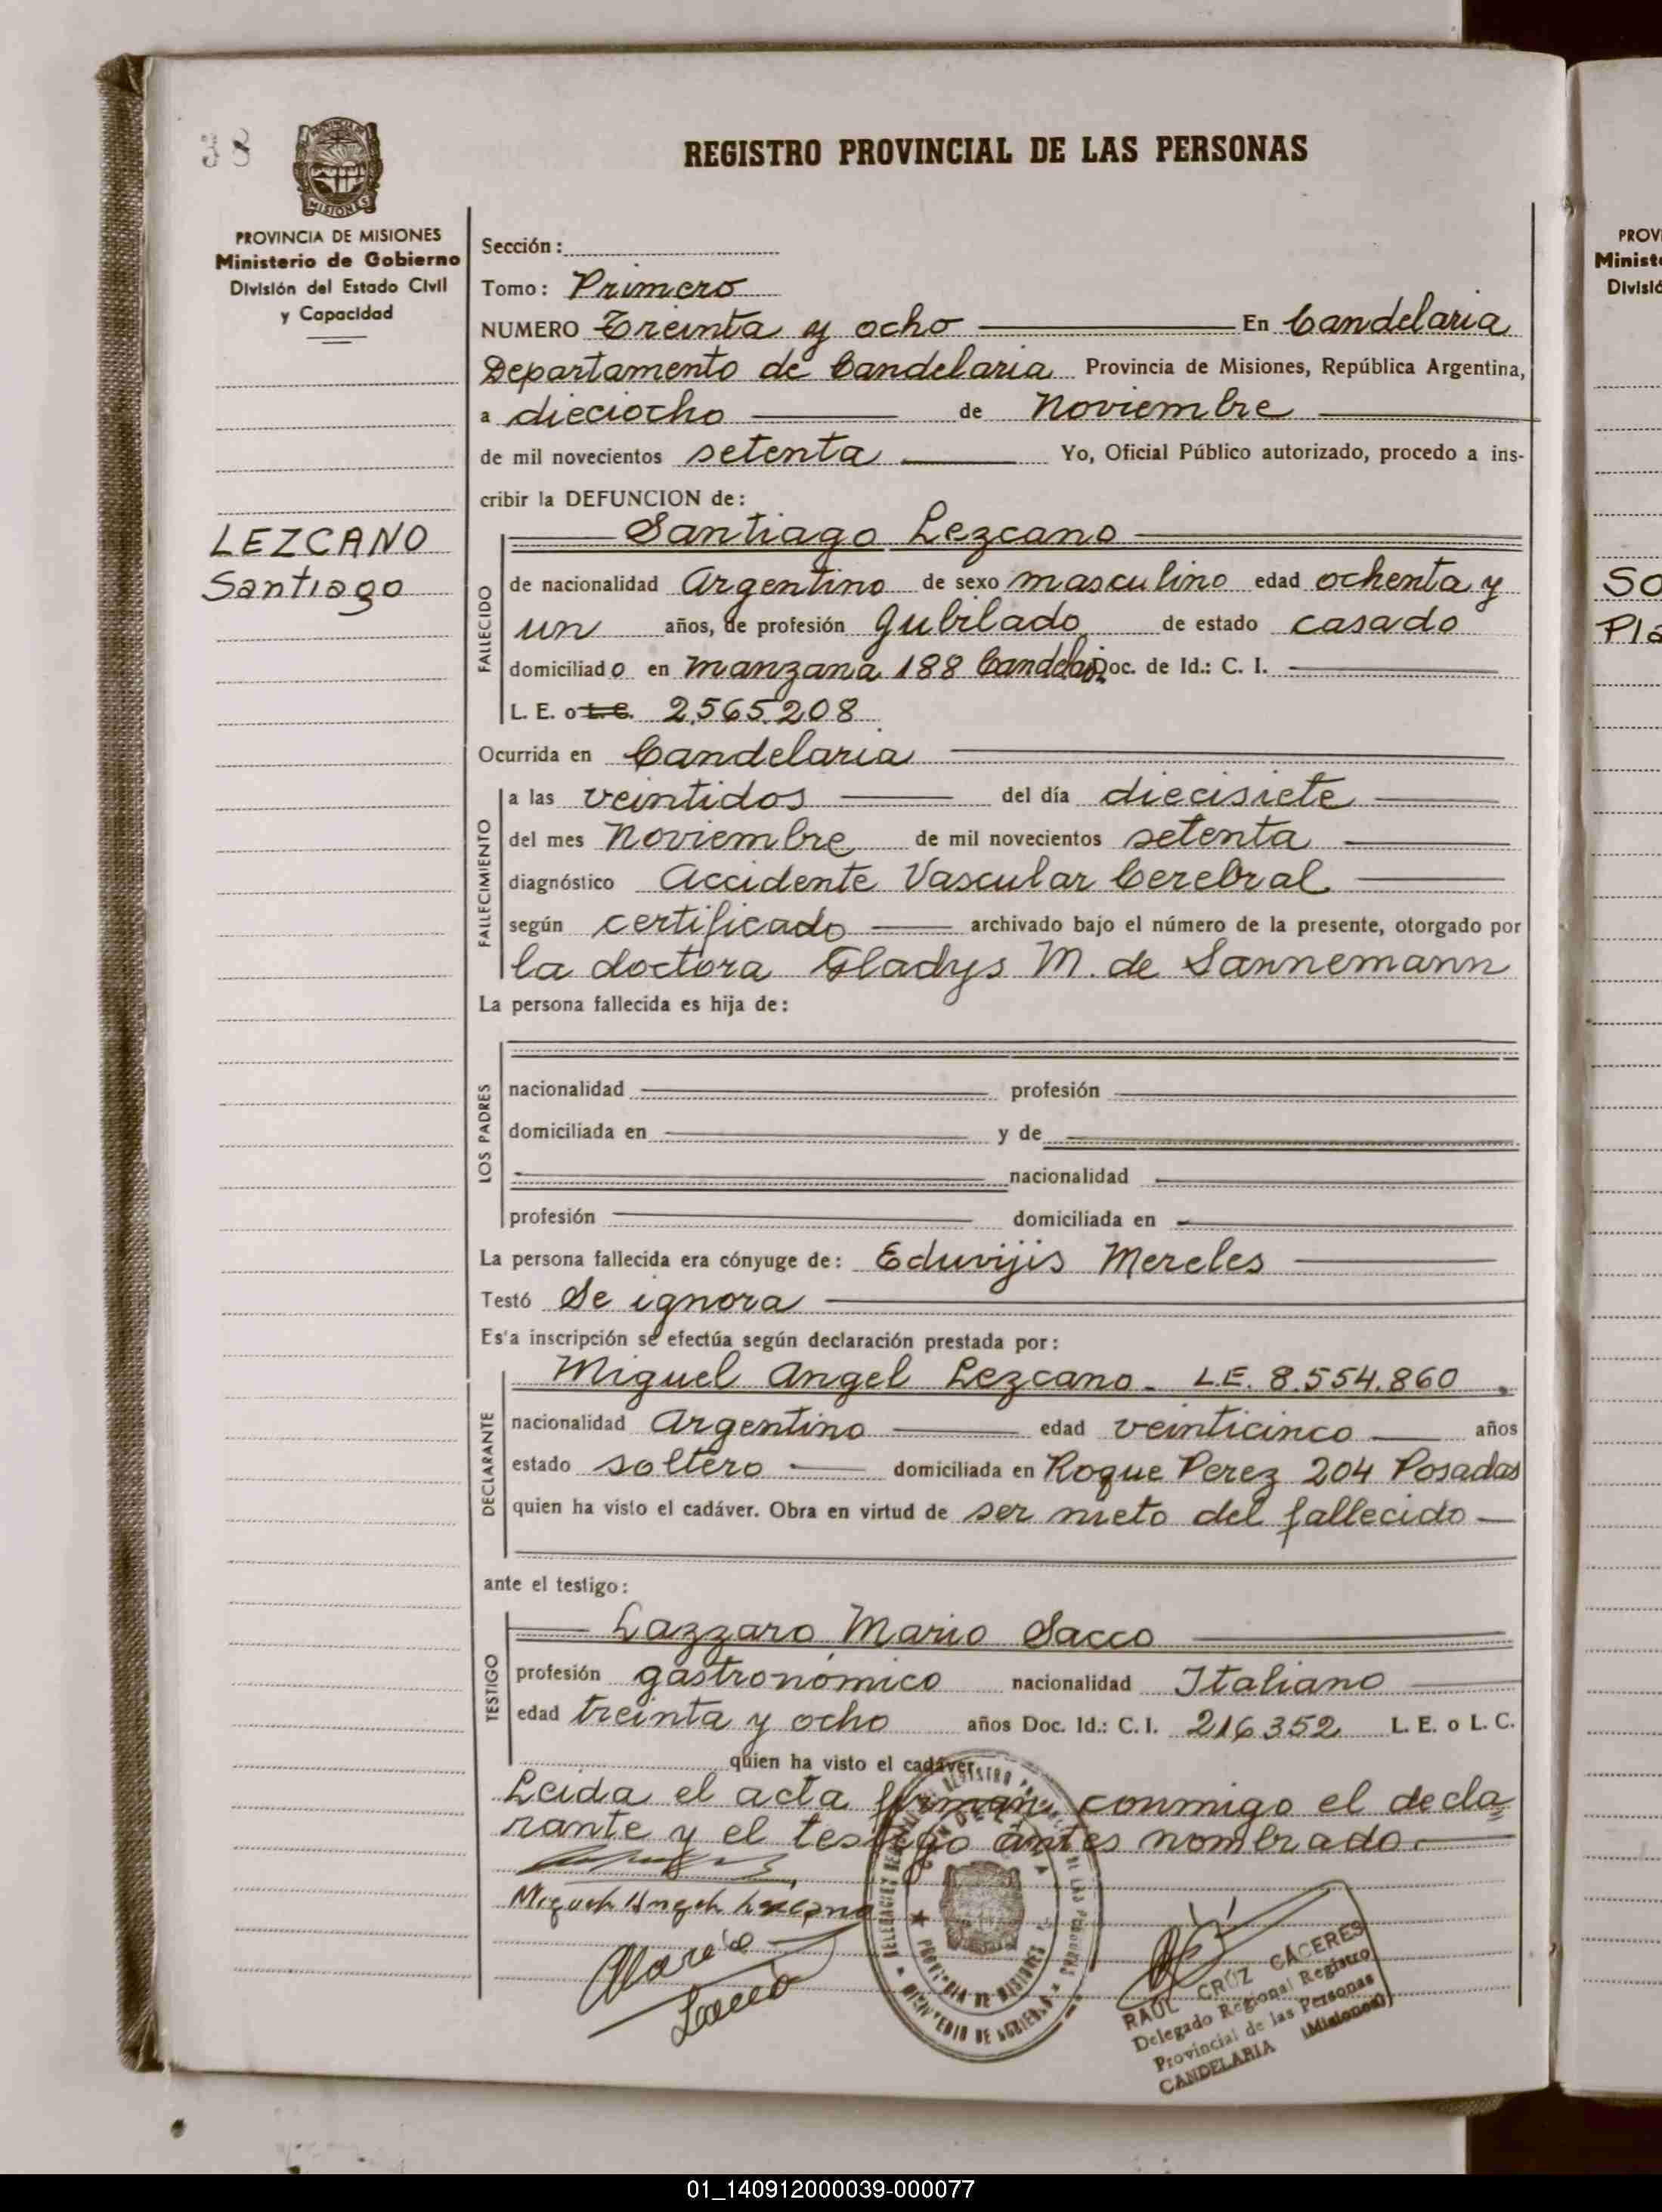 38
REGISTRO PROVINCIAL DE LAS PERSONAS
MISIONES
PROVINCIA DE MISIONES
Ministerio de Gobierno
División del Estado Civil
y Capacidad
LEZCANO
Santiago
Sección:
Tomo: Primero
NUMERO Treinta y ocho En Candelaria
Departamento de Candelaria Provincia de Misiones, República Argentina,
a dieciocho de Noviembre
de mil novecientos setenta Yo, Oficial Público autorizado, procedo a ins-
cribir la DEFUNCION de:
Santiago Lezcano
FALLECIDO
de nacionalidad Argentino de sexo masculino edad ochenta y
un años, de profesión Jubilado de estado casado
domiciliado en manzana 188 Doc. de Id.: C. I.
L. E. o L. C. 2.565.208
Ocurrida en Candelaria
FALLECIMIENTO
a las veintidos del día diecisiete
del mes Noviembre de mil novecientos setenta
diagnóstico Accidente Vascular Cerebral
según certificado archivado bajo el número de la presente, otorgado por
la doctora Gladys M. de Sannemann
La persona fallecida es hija de:
LOS PADRES
nacionalidad profesión
domiciliada en y de
nacionalidad
profesión domiciliada en
La persona fallecida era cónyuge de: Eduvijis Mereles
Testó Se ignora
Es'a inscripción se efectúa según declaración prestada por:
Miguel Angel Lezcano. L.E. 8.554.860
DECLARANTE
nacionalidad Argentino edad veinticinco años
estado soltero domiciliada en Roque Perez 204 Posadas
quien ha visto el cadáver. Obra en virtud de ser nieto del fallecido
ante el testigo:
Lazzaro Mario Sacco
TESTIGO
profesión gastronómico nacionalidad Italiano
edad treinta y ocho años Doc. Id.: C. I. 216.352 L. E. o L. C.
quien ha visto el cadáver
Leida el acta firman conmigo el decla
rante y el testigo antes nombrado.
Miguel Angel Lezcano
Mario
Sacco
PROVINCIA DE MISIONES
RAUL CRUZ CACERES
Delegado Regional Registro
Provincial de las Personas
CANDELARIA (Misiones)
PROV
Ministe
Divisió
So
Pla
01_140912000039-000077